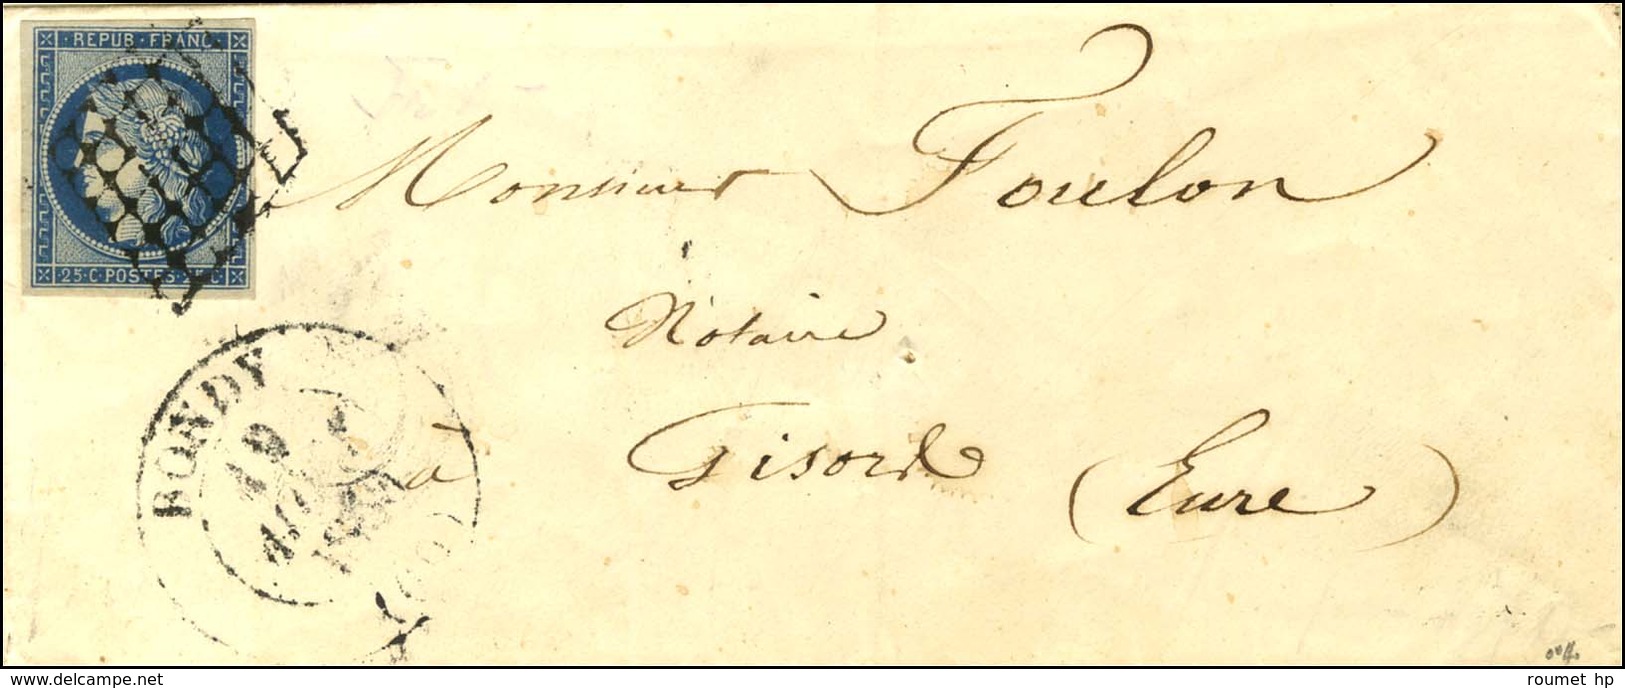 REPUB·FRANC
25·C·POSTES·25·C
Monsieur Foulon
Notaire
à Gisors (Eure)
BONDY
19
delcampe.net
roumet hp